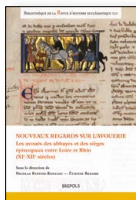 BIBLIOTHÈQUE DE LA REVUE D'HISTOIRE ECCLÉSIASTIQUE
NOUVEAUX REGARDS SUR L'AVOUERIE
Les avoués des abbayes et des sièges
épiscopaux entre Loire et Rhin
(XIe-XIIe siècles)
Sous la direction de
NICOLAS RUFFINI-RONZANI – ÉTIENNE RENARD
BREPOLS